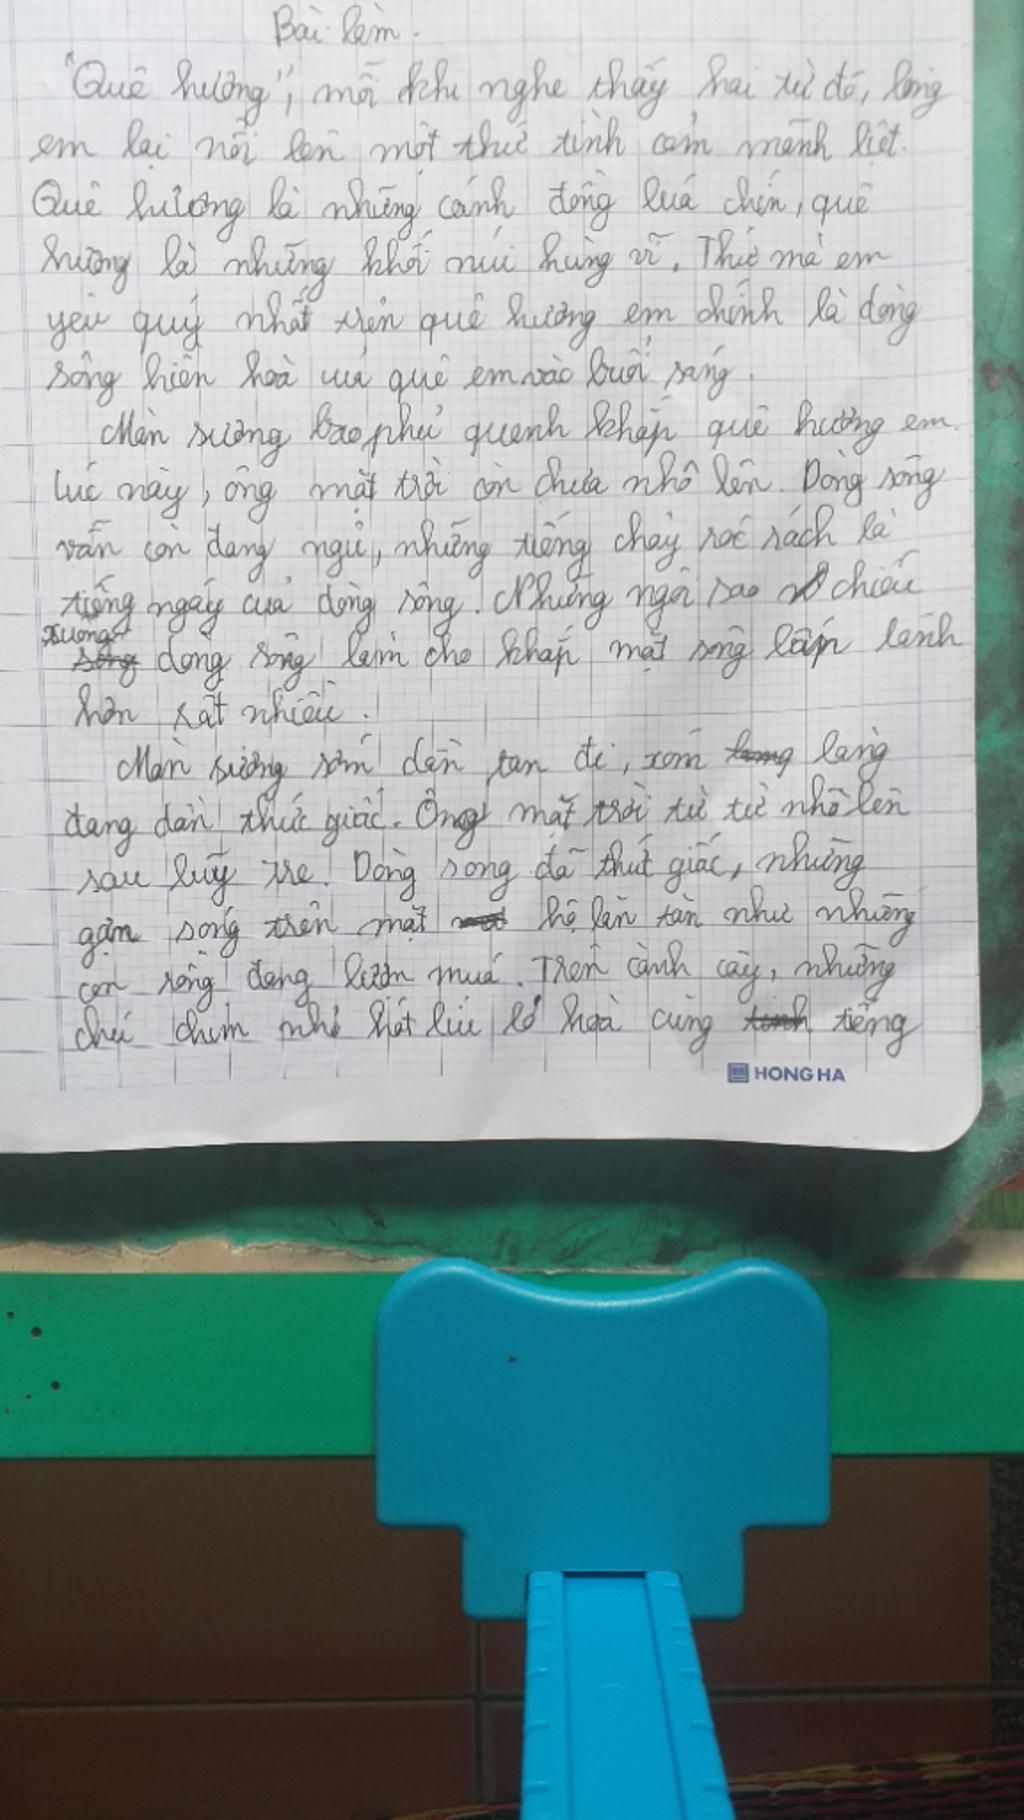 Bài làm.
"Quê hương", mỗi khi nghe thấy hai từ đó, lòng
em lại nổi lên một thứ tình cảm mãnh liệt.
Quê hương là những cánh đồng luá chín, quê
hương là những khối núi hùng vĩ. Thứ mà em
yêu quý nhất trên quê hương em chính là dòng
sông hiền hoà của quê em vào buổi sáng.
Màn sương bao phủ quanh khắp quê hương em.
lúc này, ông mặt trời còn chưa nhô lên. Dòng sông
vẫn còn đang ngủ, những tiếng chảy róc rách là
tiếng ngáy của dòng sông. Những ngôi sao chiếu
xuống dòng sông làm cho khắp mặt sông lấp lánh
hơn rất nhiều.
Màn sương sớm dần tan đi, xóm làng
đang dần thức giấc. Ông mặt trời từ từ nhô lên
sau luỹ tre. Dòng song đã thức giấc, những
gợn sóng trên mặt hồ lăn tăn như những
con rồng đang lượn múa. Trên cành cây, những
chú chim nhỏ hót líu lo hoà cùng tiếng
HONG HA